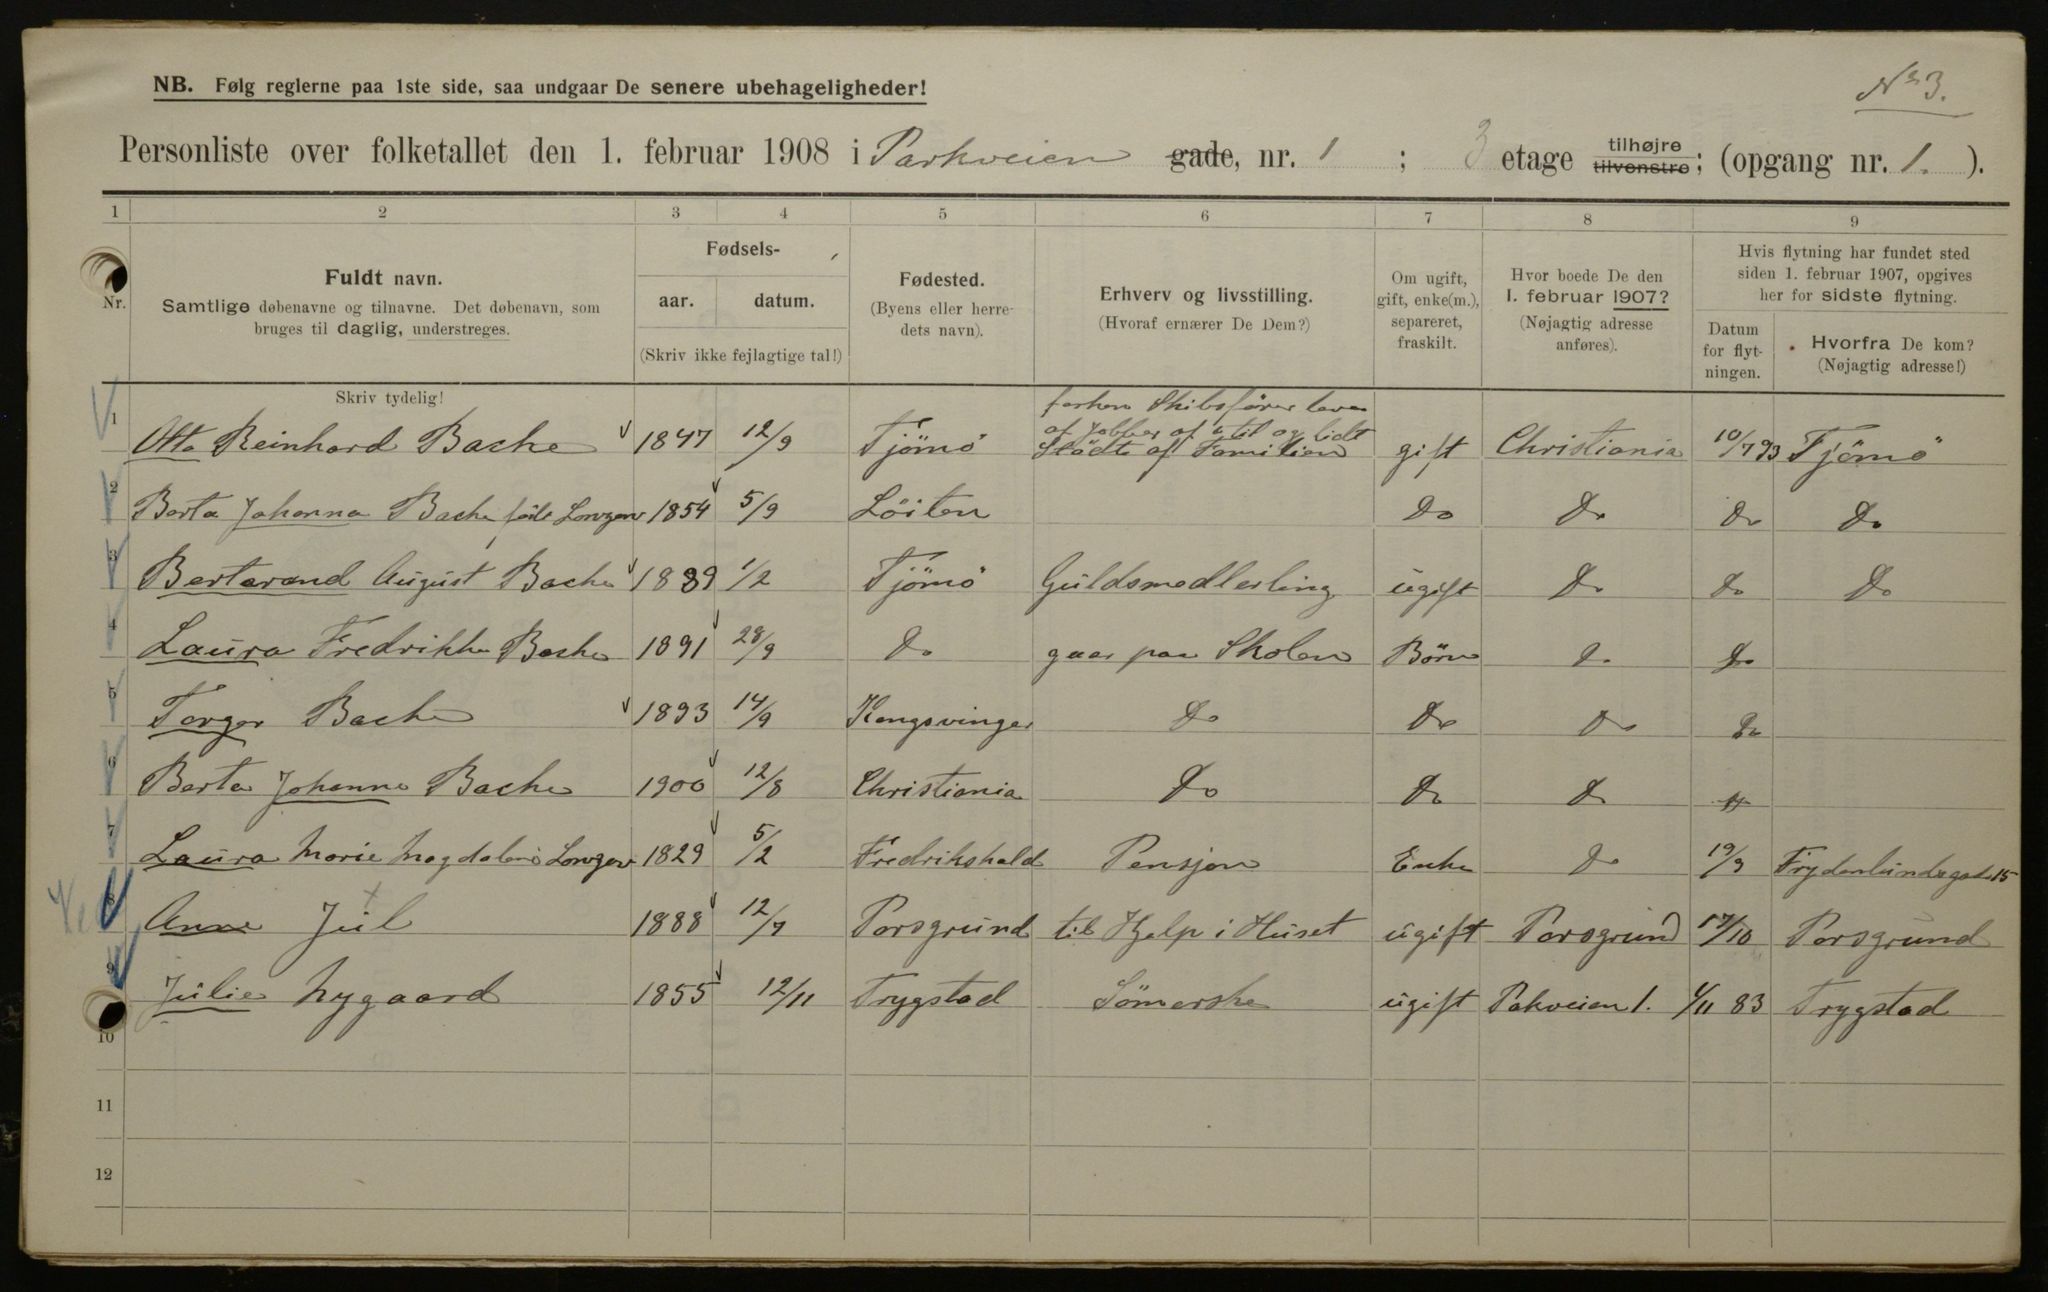 No 3.
NB. Følg reglerne paa 1ste side, saa undgaar De senere ubehageligheder!
Personliste over folketallet den 1. februar 1908 i Parkveien gade, nr. 1 ; 3 etage tilhøjre tilvenstre; (opgang nr. 1. ).
1 2 3 4 5 6 7 8 9
Nr.
Fuldt navn.
Samtlige døbenavne og tilnavne. Det døbenavn, som
bruges til daglig, understreges.
Skriv tydelig!
Fødsels-
aar. datum.
(Skriv ikke fejlagtige tal!)
Fødested.
(Byens eller herre-
dets navn).
Erhverv og livsstilling.
(Hvoraf ernærer De Dem?)
Om ugift,
gift, enke(m.),
separeret,
fraskilt.
Hvor boede De den
1. februar 1907?
(Nøjagtig adresse
anføres).
Hvis flytning har fundet sted
siden 1. februar 1907, opgives
her for sidste flytning.
Datum
for flyt-
ningen.
Hvorfra De kom?
(Nøjagtig adresse!)
1 Otto Reinhard Bache 1847 12/9 Tjömö forhen Skibsförer lever
af Jobber af & til og lidt
Stödte af Familien gift Christiania 10/7 93 Tjömö
2 Berta Johanna Bache föit 1854 5/9 Löiten Do Do Do Do
3 Bertarand August Bache 1889 1/2 Tjömö Guldsmedlerling ugift Do Do Do
4 Laura Fredrikke Bache 1891 28/9 Do gaar paa Skolen Börn Do Do
5 Torger Bache 1893 14/9 Kongsvinger Do Do Do Do
6 Berta Johanne Bache 1900 12/8 Christiania Do Do Do
7 Laura Marie Magdalene 1829 5/2 Fredrikshald Pensjon Enke Do 19/9 Frydenlundsgade 15
8 Anne Jul 1888 12/7 Porsgrund til Hjelp i Huset ugift Porsgrund 17/10 Porsgrund
9 Julie Nygaard 1855 12/11 Trygstad Sömerske ugift Pakveien 1. 1/11 83 Trygstad
10
11
12